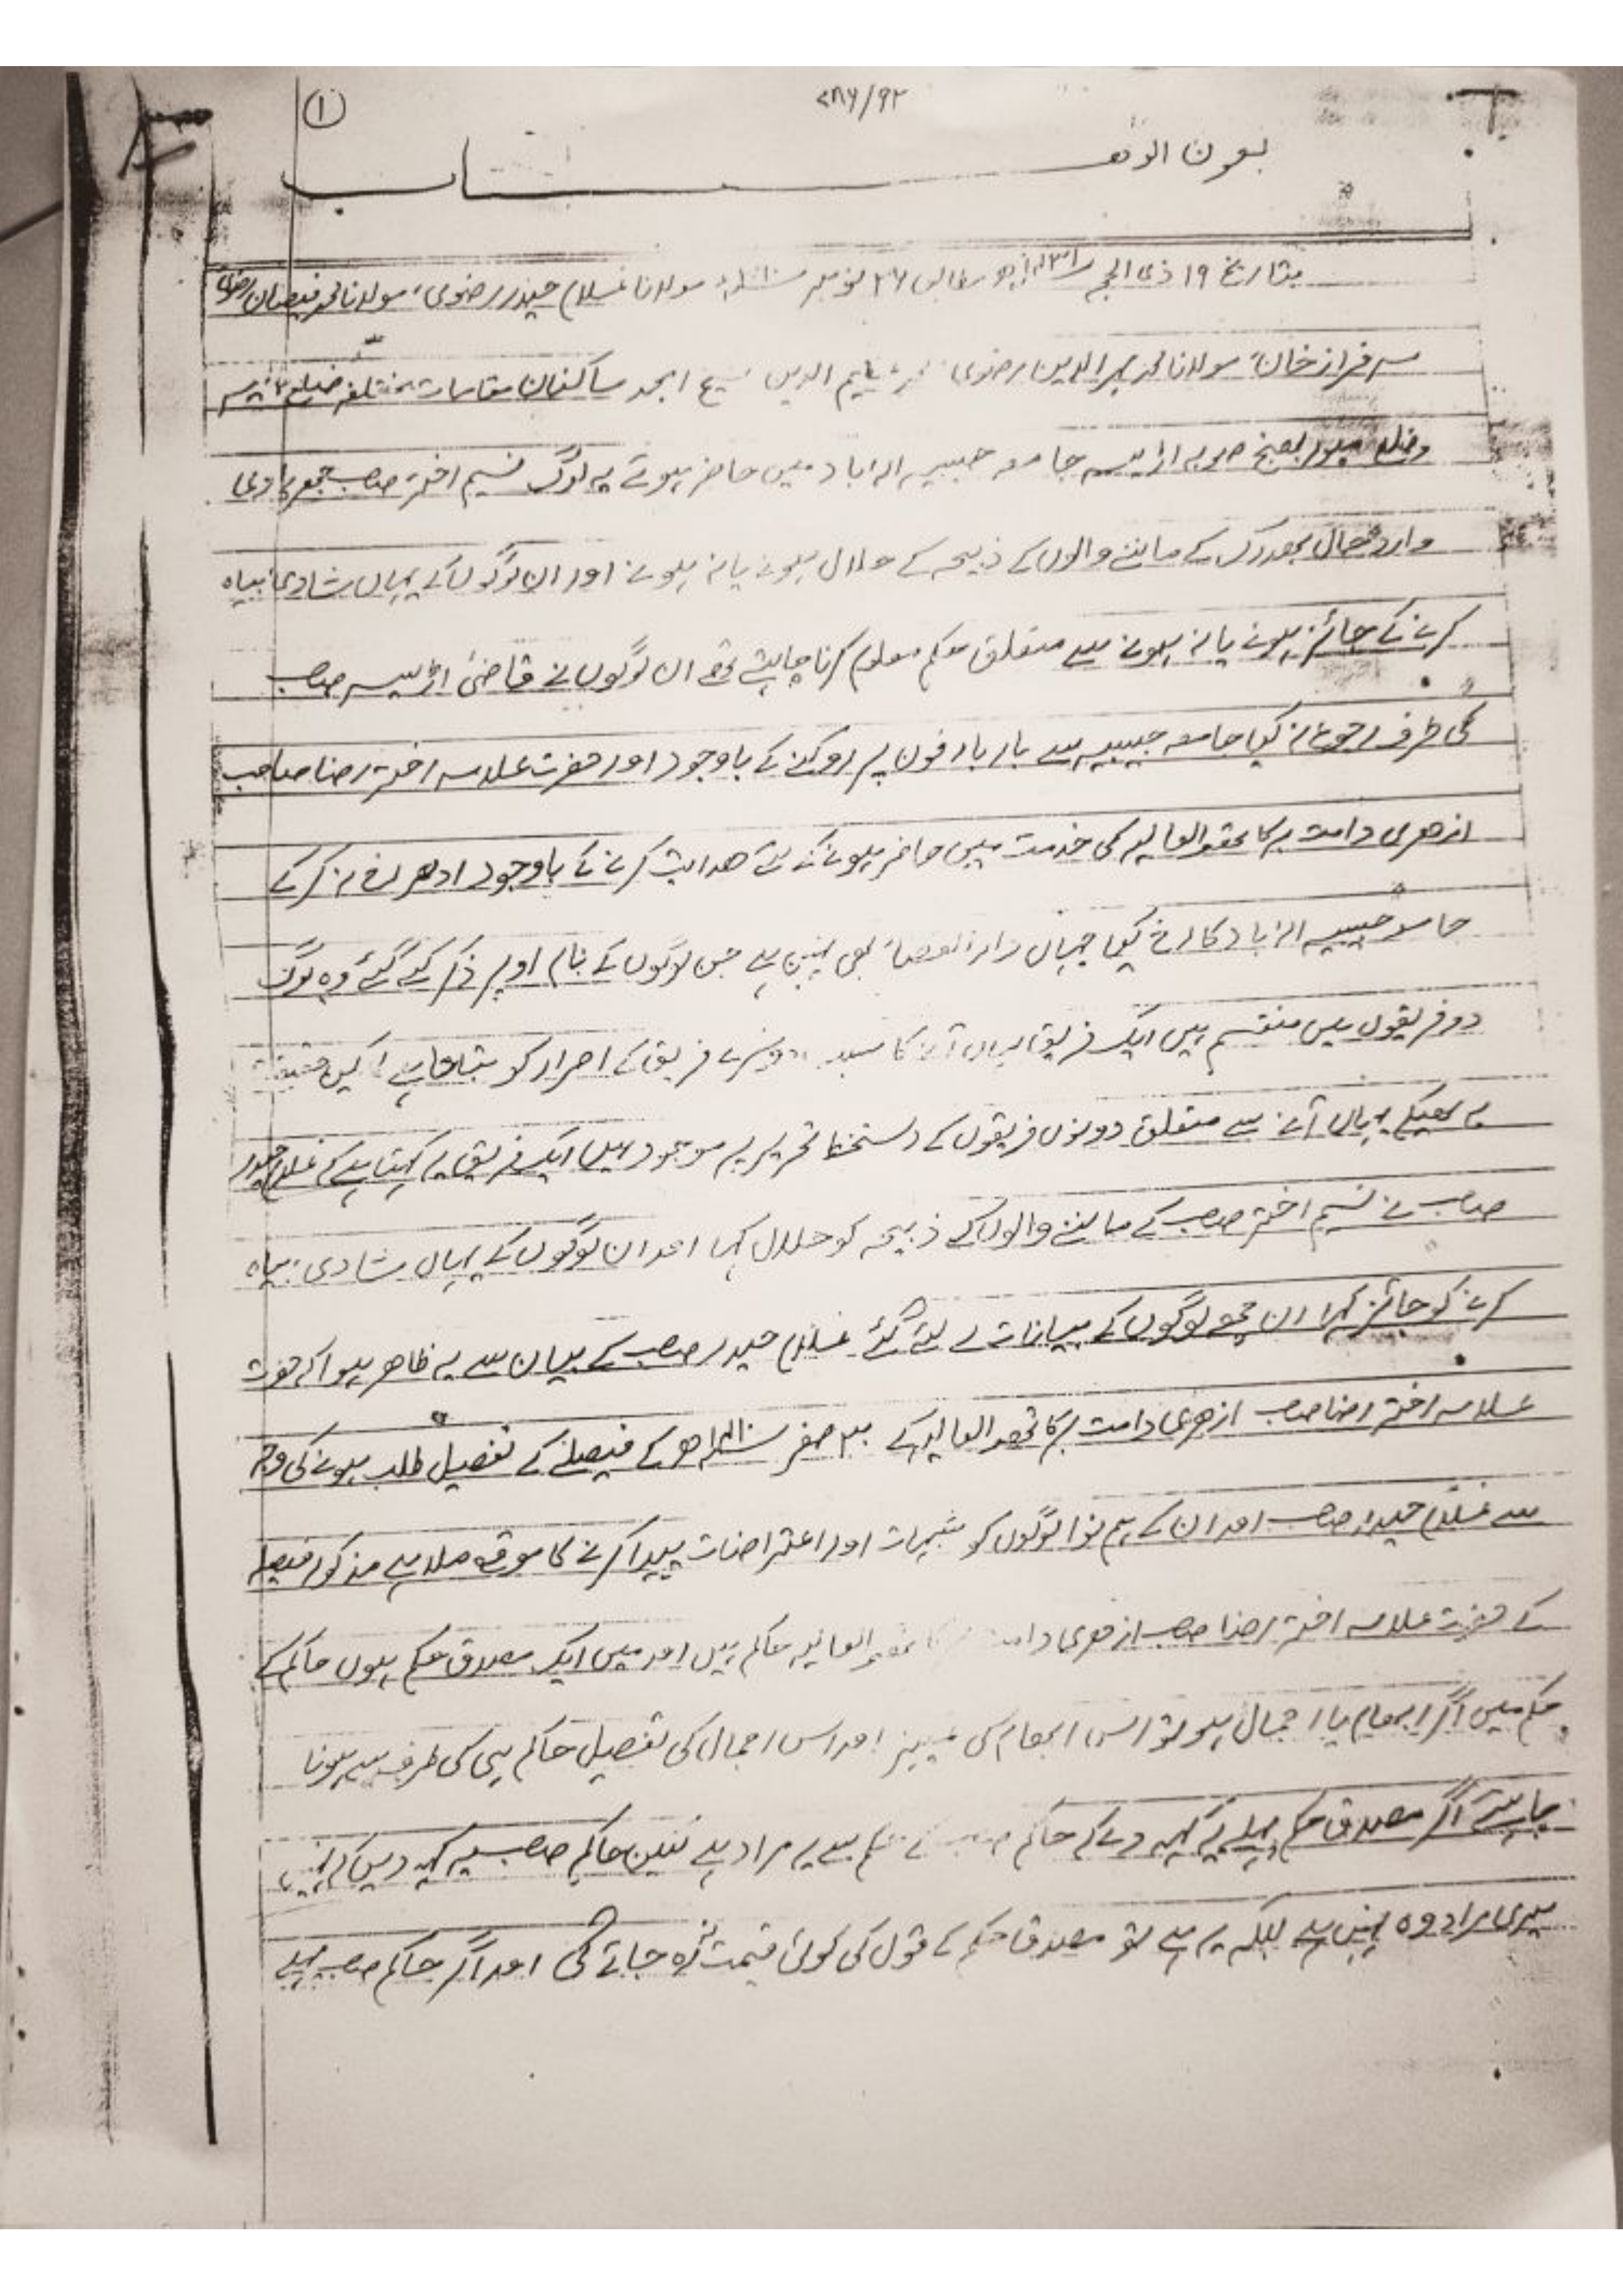 ۷۸۶/۹۲
①
بعون الوہاب
بتاریخ ۱۹ ذی الحجہ ۱۴۳۱ھ مطابق ۲۶ نومبر ۲۰۱۰ء مولانا غلام حیدر رضوی، مولانا محمد فیضان رضوی
سرفراز خان، مولانا محمد الدین رضوی الدین امجد ساکنان مقامات مختلفہ ضلع
وضلع صوبہ اڑیسہ جامعہ حبیبیہ الہ اباد میں حاضر ہوئے یہ لوگ نسیم اختر صاحب
وارد حال بھدرک کے ماننے والوں کے ذبیحہ کے حلال ہونے یا نہ ہونے اور ان لوگوں کے یہاں شادی بیاہ
کرنے کے جائز ہونے یا نہ ہونے سے متعلق حکم معلوم کرنا چاہتے تھے ان لوگوں نے قاضئ اڑیسہ صاحب
کی طرف رجوع نہ کیا جامعہ حبیبیہ سے بار بار فون پر روکنے کے باوجود اور حضرت علامہ اختر رضا صاحب
ازھری دامت برکاتھم العالیہ کی خدمت میں حاضر ہونے کے لئے ھدایت کرنے کے باوجود ادھر رخ نہ کر کے
جامعہ حبیبیہ الہ اباد کا رخ کیا جہاں دارالقضاء بھی نہیں ہے جن لوگوں کے نام اوپر ذکر کئے گئے وہ لوگ
دو فریقوں میں منقسم ہیں ایک فریق یہاں آنے کا سبب دوسرے فریق کے اصرار کو بتاتا ہے لیکن حقیقت
یہ ھیکہ یہاں آنے سے متعلق دونوں فریقوں کے دستخط تحریر پر موجود ہیں ایک فریق یہ کہتا ہے کہ غلام حیدر
صاحب نے نسیم اختر صاحب کے ماننے والوں کے ذبیحہ کو حلال کہا اور ان لوگوں کے یہاں شادی بیاہ
کرنے کو جائز کہا ان چھ لوگوں کے بیانات لے لئے گئے غلام حیدر صاحب کے بیان سے یہ ظاھر ہوا کہ حضرت
علامہ اختر رضا صاحب ازھری دامت برکاتھم العالیہ کے ۳۰ صفر ھ کے فیصلے کے تفصیل طلب ہونے کی وجہ
سے غلام حیدر صاحب اور ان کے ہم نوا لوگوں کو شبہات اور اعتراضات پیدا کرنے کا موقع ملا ہے مذکور فیصلہ
کے حضرت علامہ اختر رضا صاحب ازھری دامت برکاتھم العالیہ حاکم ہیں اور میں ایک مصدق حکم ہوں حاکم کے
حکم میں اگر ابھام یا اجمال ہو تو اس ابھام کی تمییز اور اس اجمال کی تفصیل حاکم ہی کی طرف سے ہونا
چاہیئے اگر مصدق حکم پہلے یہ کہہ دے کہ حاکم صاحب کے حکم سے یہ مراد ہے لیکن حاکم صاحب یہ کہہ دیں کہ نہیں
میری مراد وہ نہیں ہے بلکہ یہ ہے تو مصدق حکم کے قول کی کوئی قیمت نہ رہ جائے گی اور اگر حاکم صاحب پہلے